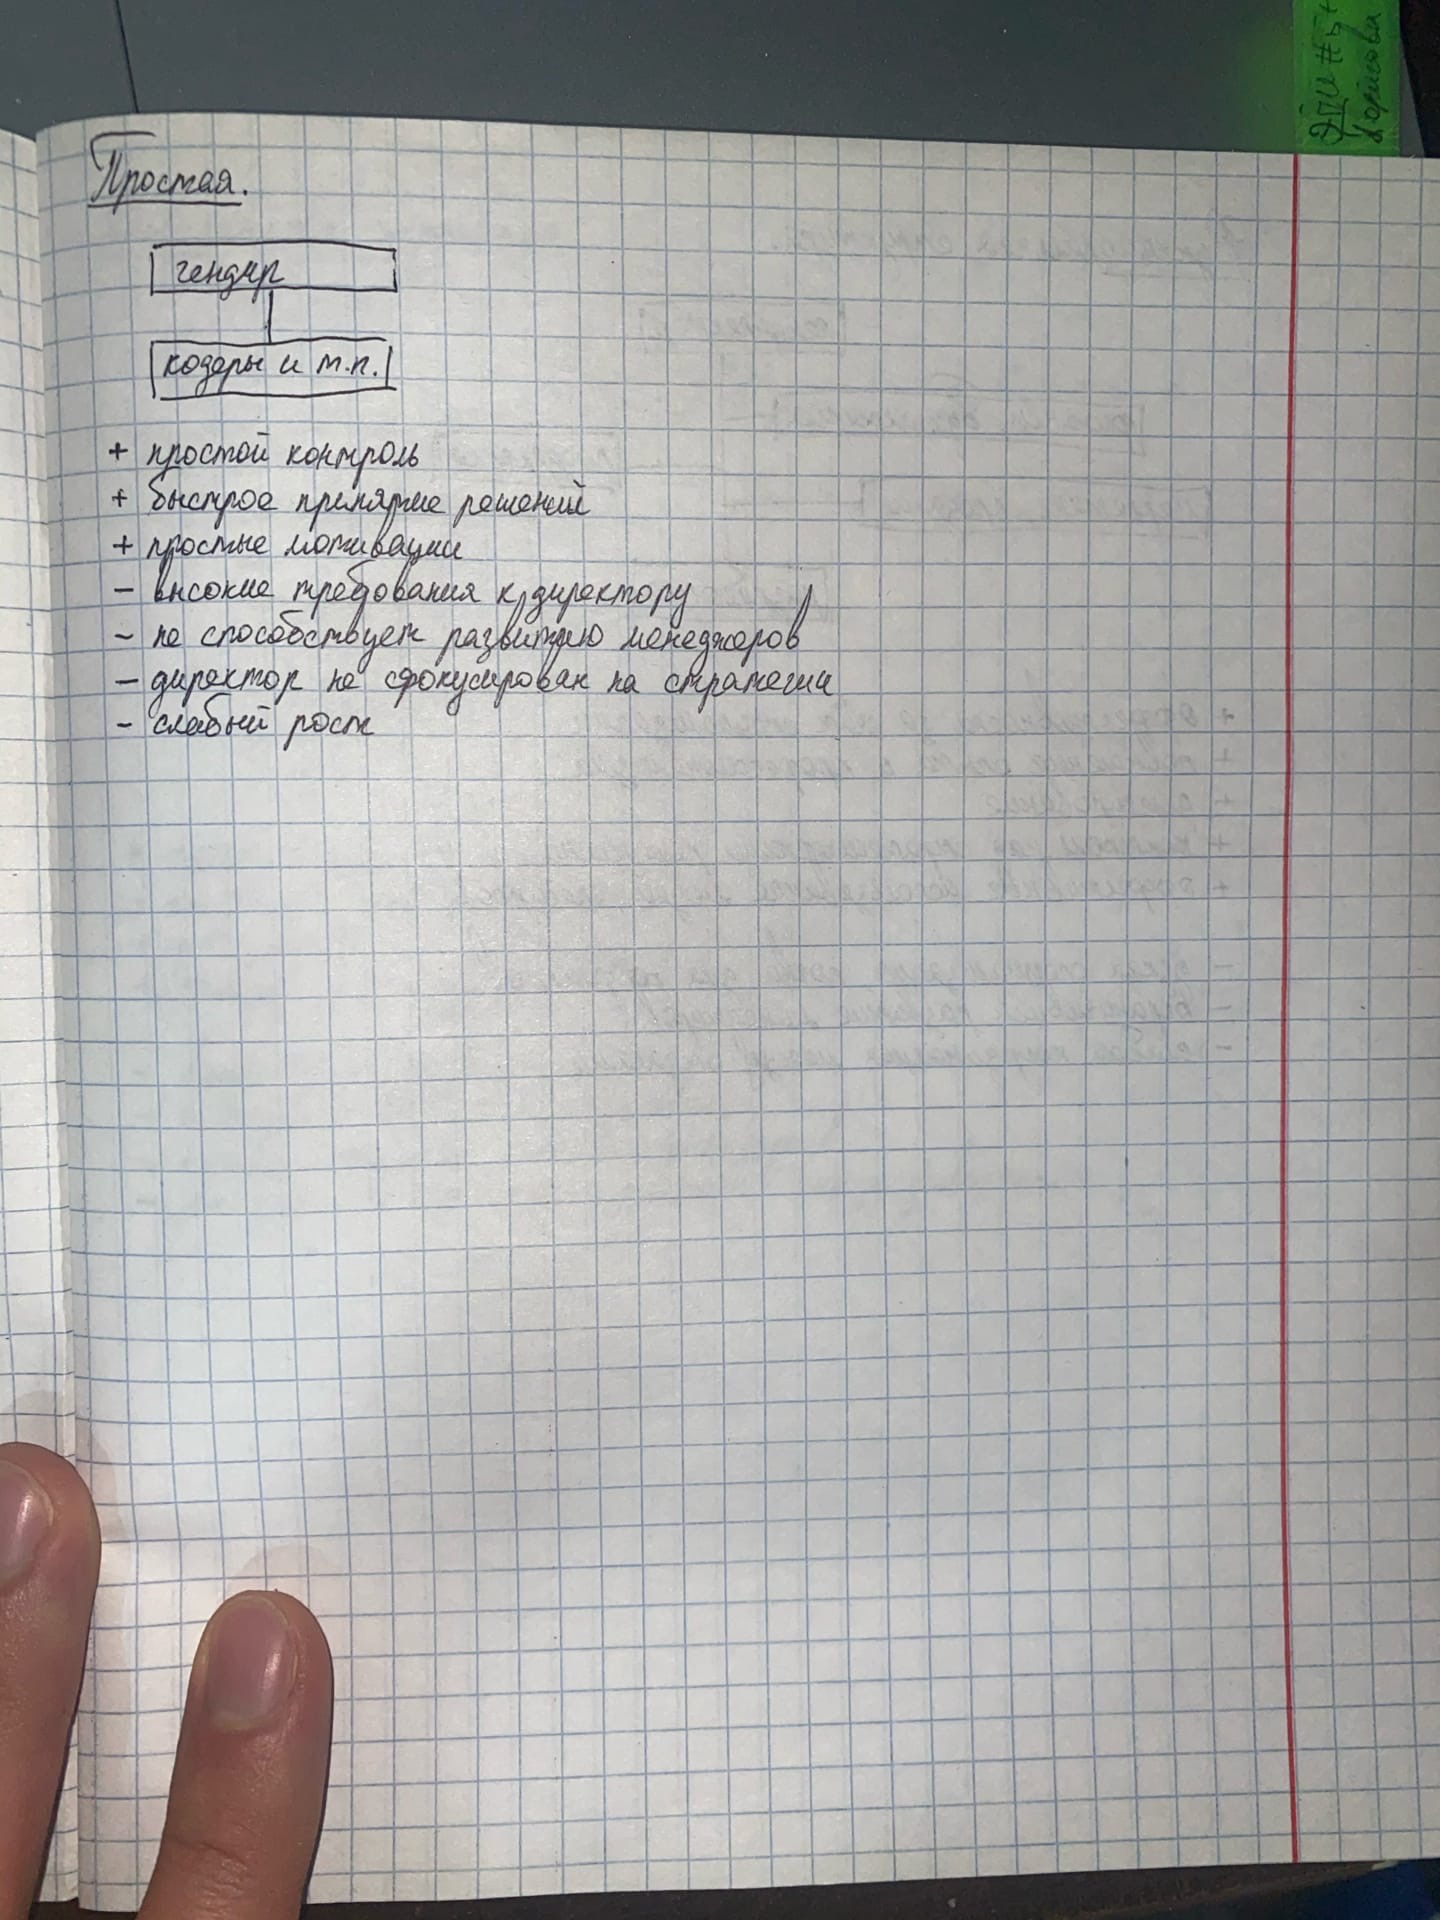 Простая.
гендир
кодеры и т.п.
+ простой контроль
+ быстрое принятие решений
+ простые мотивации
- высокие требования к директору
- не способствует развитию менеджеров
- директор не сфокусирован на стратегии
- слабый рост